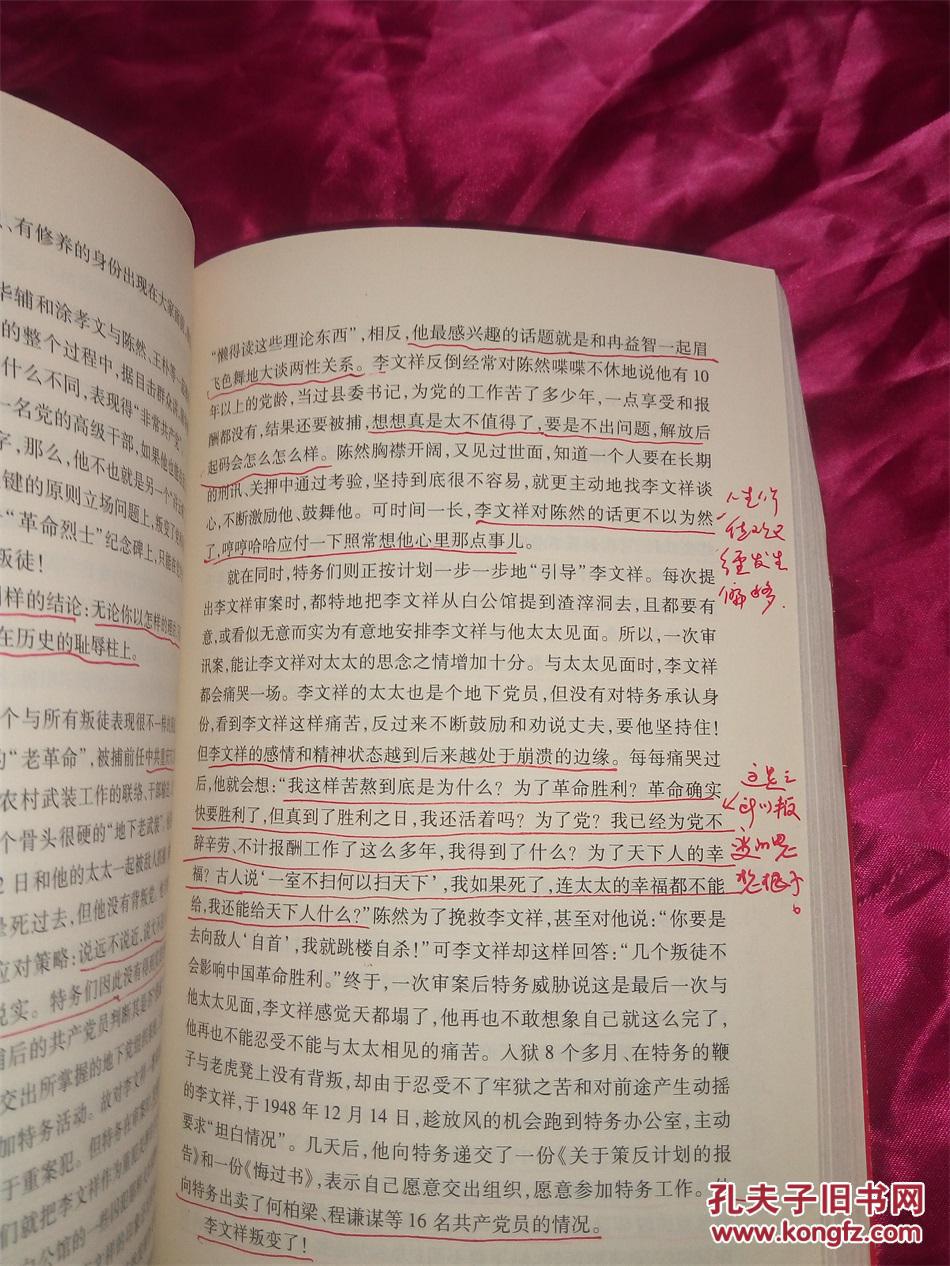 、有修养的身份出现在大家
华辅和涂孝文与陈然、王朴等一
的整个过程中,据目击群众讲
什么不同,表现得“非常共产党”
一名党的高级干部,如果他也能
字,那么,他不也就是另一个“许
键的原则立场问题上,叛变了
“革命烈士”纪念碑上,只能
叛徒!
同样的结论:无论你以怎样的
在历史的耻辱柱上。
个与所有叛徒表现很不一样
的“老革命”,被捕前任中共重庆
农村武装工作的联络、干部
个骨头很硬的“地下老武装”
2日和他的太太一起被敌人
晕死过去,但他没有背叛党
应对策略:说远不说近,说
说实。特务们因此没有得到
捕后的共产党员判断其是否
交出所掌握的地下党组织
加特务活动。故对李文祥一
于重案犯。但特务在审讯
们就把李文祥作为重庆
白公馆的一些因犯
“懒得读这些理论东西”,相反,他最感兴趣的话题就是和冉益智一起眉
飞色舞地大谈两性关系。李文祥反倒经常对陈然喋喋不休地说他有10
年以上的党龄,当过县委书记,为党的工作苦了多少年,一点享受和报
酬都没有,结果还要被捕,想想真是太不值得了,要是不出问题,解放后
起码会怎么怎么样。陈然胸襟开阔,又见过世面,知道一个人要在长期
的刑讯、关押中通过考验,坚持到底很不容易,就更主动地找李文祥谈
心,不断激励他、鼓舞他。可时间一长,李文祥对陈然的话更不以为然
了,哼哼哈哈应付一下照常想他心里那点事儿。
就在同时,特务们则正按计划一步一步地“引导”李文祥。每次提
出李文祥审案时,都特地把李文祥从白公馆提到渣滓洞去,且都要有
意,或看似无意而实为有意地安排李文祥与他太太见面。所以,一次审
讯案,能让李文祥对太太的思念之情增加十分。与太太见面时,李文祥
都会痛哭一场。李文祥的太太也是个地下党员,但没有对特务承认身
份,看到李文祥这样痛苦,反过来不断鼓励和劝说丈夫,要他坚持住!
但李文祥的感情和精神状态越到后来越处于崩溃的边缘。每每痛哭过
后,他就会想:“我这样苦熬到底是为什么?为了革命胜利?革命确实
快要胜利了,但真到了胜利之日,我还活着吗?为了党?我已经为党不
辞辛劳、不计报酬工作了这么多年,我得到了什么?为了天下人的幸
福?古人说‘一室不扫何以扫天下’,我如果死了,连太太的幸福都不能
给,我还能给天下人什么?”陈然为了挽救李文祥,甚至对他说:“你要是
去向敌人‘自首’,我就跳楼自杀!”可李文祥却这样回答:“几个叛徒不
会影响中国革命胜利。”终于,一次审案后特务威胁说这是最后一次与
他太太见面,李文祥感觉天都塌了,他再也不敢想象自己就这么完了,
他再也不能忍受不能与太太相见的痛苦。入狱8个多月、在特务的鞭
子与老虎凳上没有背叛,却由于忍受不了牢狱之苦和对前途产生动摇
的李文祥,于1948年12月14日,趁放风的机会跑到特务办公室,主动
要求“坦白情况”。几天后,他向特务递交了一份《关于策反计划的报
告》和一份《悔过书》,表示自己愿意交出组织,愿意参加特务工作。
向特务出卖了何柏梁、程谦谋等16名共产党员的情况。
李文祥叛变了!
人生价
值观已
经发生
偏移.
这是之
所以叛
变的思
想根子。
孔夫子旧书网
www.kongfz.com